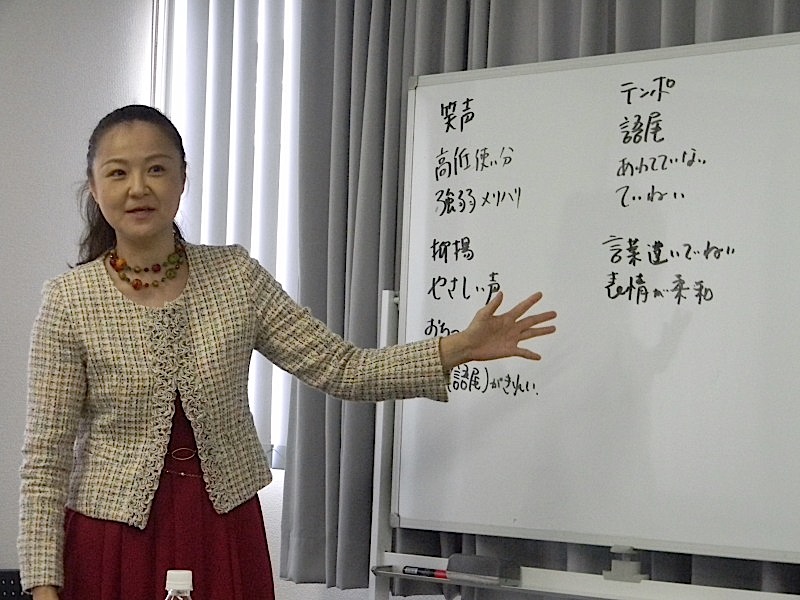 笑声
高低使い分
強弱メリハリ
抑揚
やさしい声
おちつ
(語尾)がきれい.
テンポ
語尾
あわてていない
ていねい
言葉遣いていねい
表情が柔和